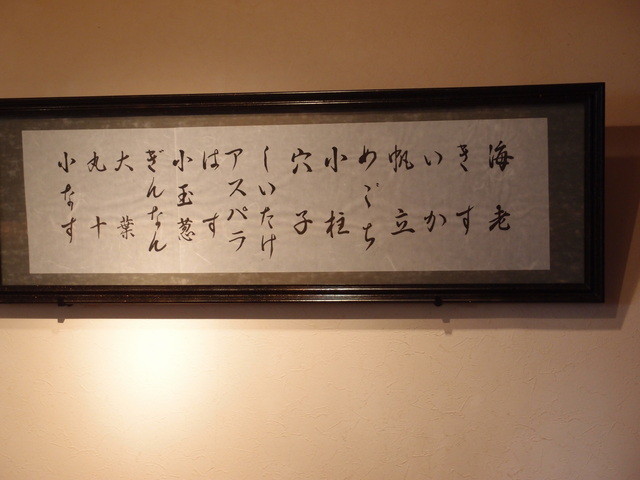 海老
きす
いか
帆立
めごち
小柱
穴子
しいたけ
アスパラ
はす
小玉葱
ぎんなん
大葉
丸十
小なす